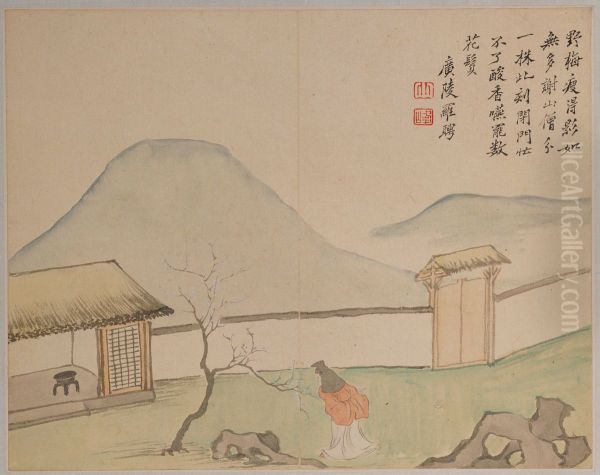 野梅瘦得影如
無多謝山僧分
一株此刻閉門忙
不了酸香嚥罷數
花鬚
廣陵羅聘
AliceArtGallery.com